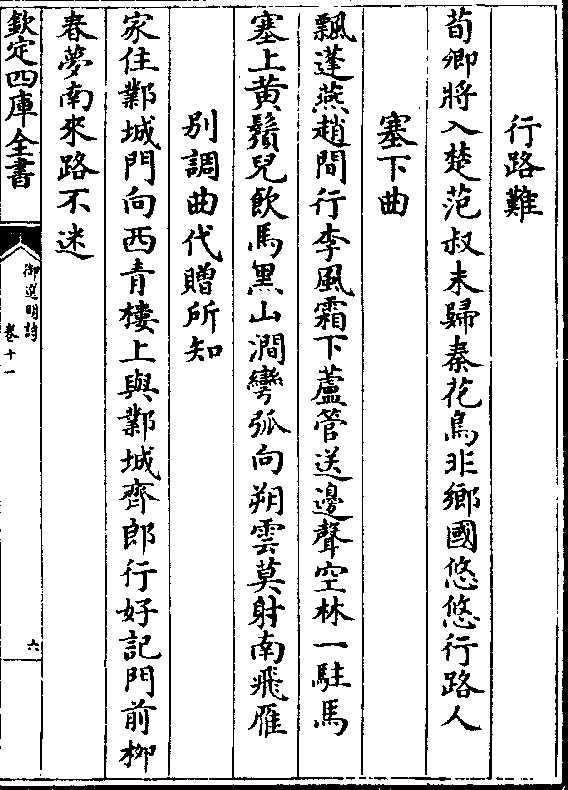 行路難
荀卿將入楚范叔未歸秦花鳥非鄉國悠悠行路人
塞下曲
飄蓬燕趙間行李風霜下蘆管送邊聲空林一駐馬
塞上黃鬚兒飲馬黑山澗彎弧向朔雲莫射南飛雁
別調曲代贈所知
家住鄴城門向西青樓上與鄴城齊郎行好記門前栁
春夢南來路不迷
欽定四庫全書
御選明詩
卷十一
六